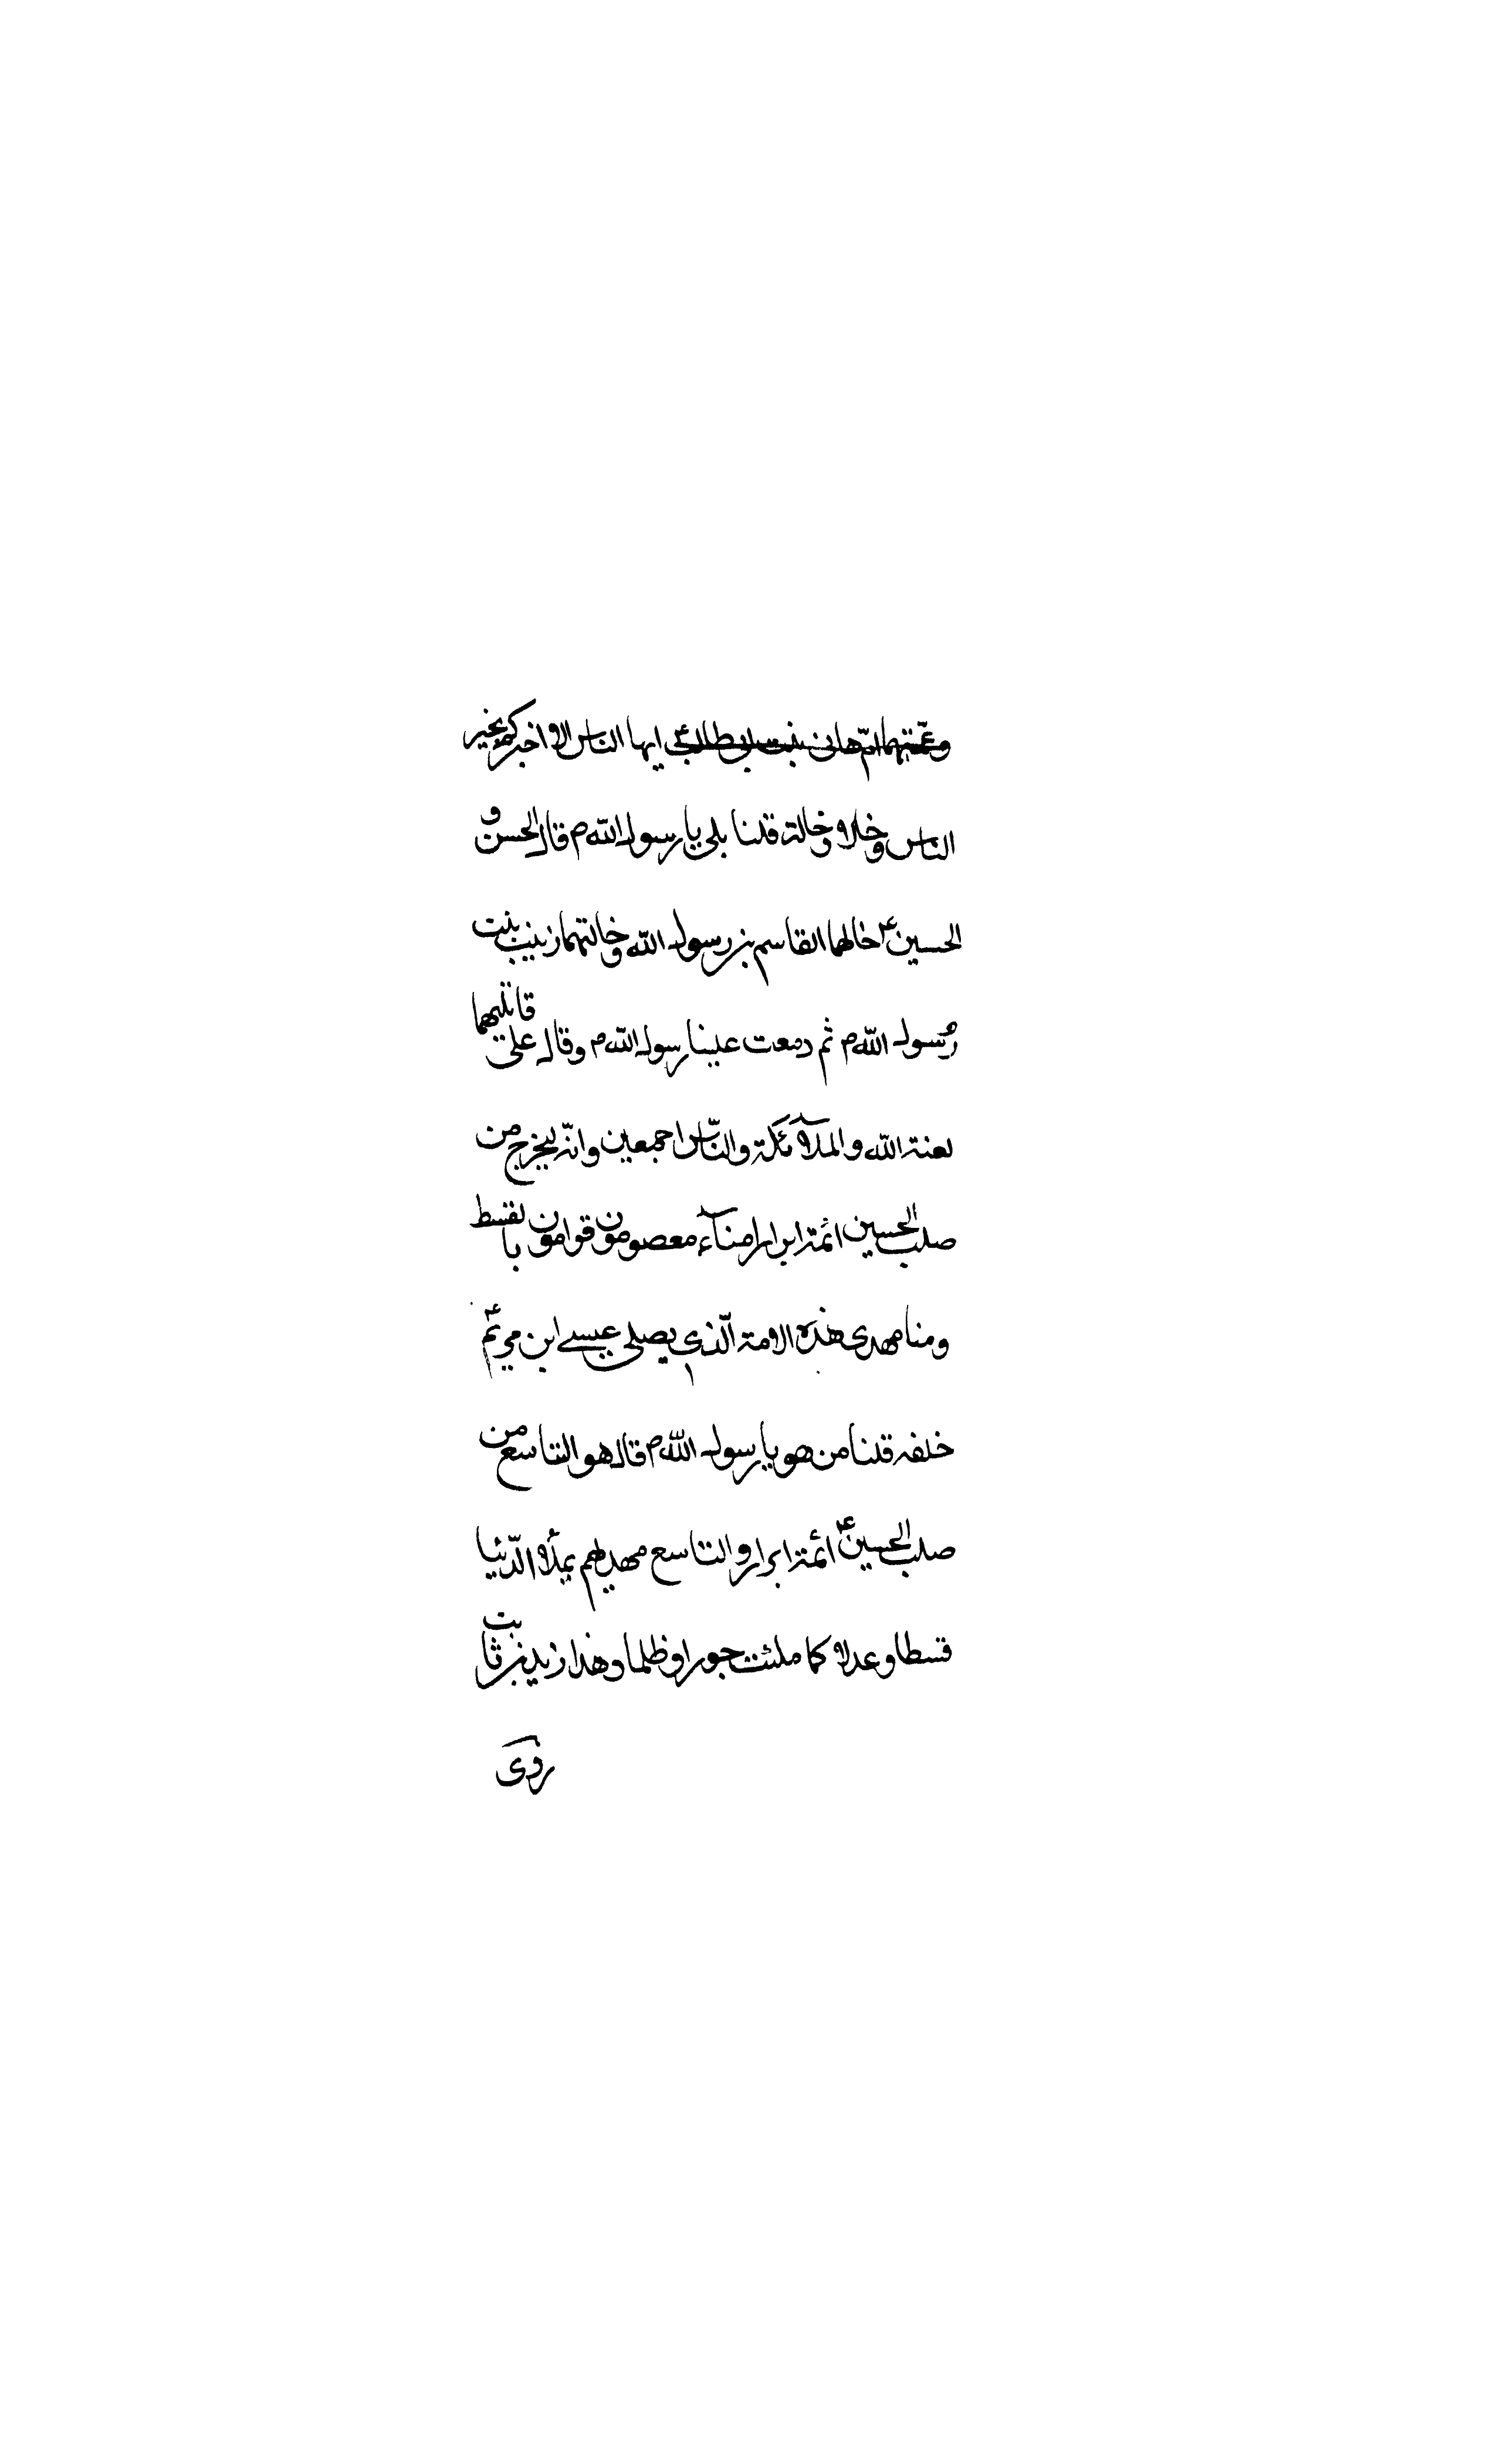 وعمّتهما امّ هانی بنت ابی طالب ع ایها الناس الا اخبرکم بخیر
الناس خالا وخالة قلنا بلی یا رسول الله ص قال الحسن و
الحسین ع خالهما القاسم بن رسول الله وخالتهما زینب بنت
رسول الله ص ثم دمعت عینا رسول الله ص وقال علی قاتلیهما
لعنة الله والملآئکة والنّاس اجمعین وانّه لیخرج من
صلب الحسین ائمة ابرار امنآء معصومون قوامون بالقسط
ومنا مهدی هذه الامة الّذی یصلی عیسی ابن مریم
خلفه قلنا من هو یا رسول الله ص قال هو التاسع من
صلب الحسین ع ائمة ابرار والتاسع مهدیهم یملأ الدّنیا
قسطا وعدلا کما ملئت جورا وظلما وهذا زید بن ثابت
روی